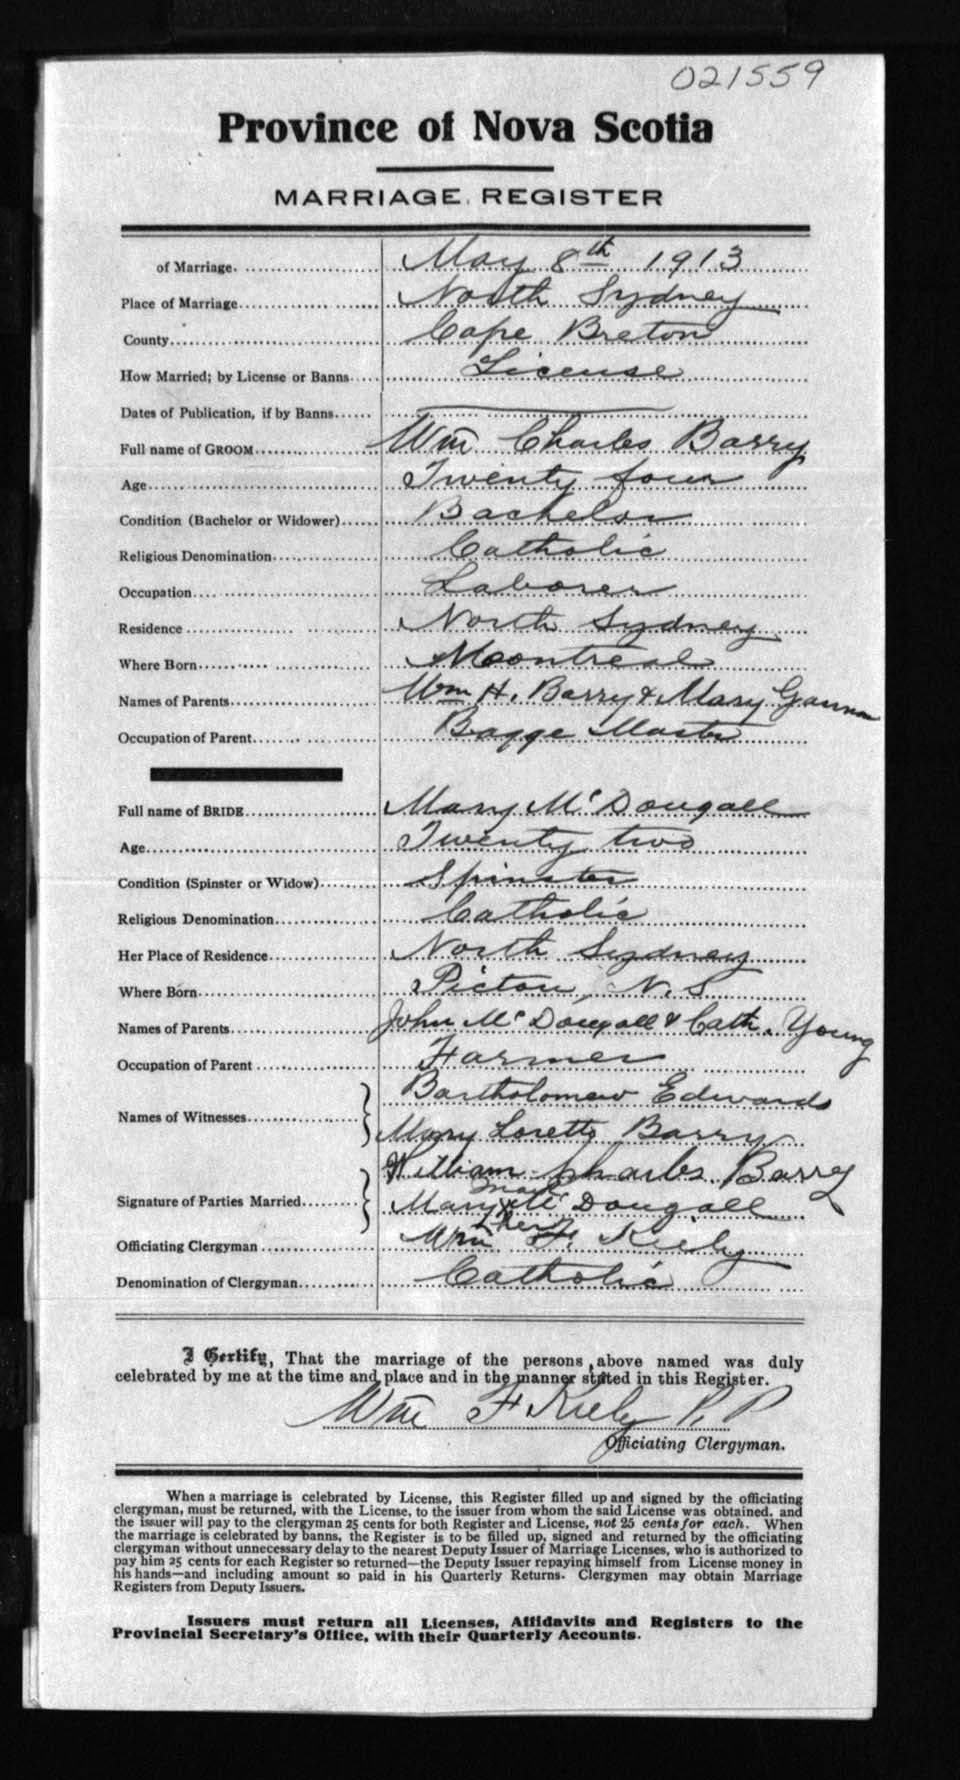 021559
Province of Nova Scotia
MARRIAGE REGISTER
of Marriage. May 8th 1913
Place of Marriage North Sydney
County Cape Breton
How Married; by License or Banns License
Dates of Publication, if by Banns
Full name of GROOM Wm Charles Barry
Age Twenty four
Condition (Bachelor or Widower) Bachelor
Religious Denomination Catholic
Occupation Laborer
Residence North Sydney
Where Born Montreal
Names of Parents Wm H. Barry & Mary Gannon
Occupation of Parent Bagge Master
Full name of BRIDE Mary McDougall
Age Twenty two
Condition (Spinster or Widow) Spinster
Religious Denomination Catholic
Her Place of Residence North Sydney
Where Born Pictou, N.S
Names of Parents John McDougall & Cath. Young
Occupation of Parent Farmer
Names of Witnesses Bartholomew Edwards
Mary Loretto Barry
Signature of Parties Married William Charles Barry
Mary her X mark McDougall
Officiating Clergyman Wm F. Kiely
Denomination of Clergyman Catholic
I Certify, That the marriage of the persons above named was duly
celebrated by me at the time and place and in the manner stated in this Register.
Wm F Kiely P. P
Officiating Clergyman.
When a marriage is celebrated by License, this Register filled up and signed by the officiating
clergyman, must be returned, with the License, to the issuer from whom the said License was obtained, and
the issuer will pay to the clergyman 25 cents for both Register and License, not 25 cents for each. When
the marriage is celebrated by banns, the Register is to be filled up, signed and returned by the officiating
clergyman without unnecessary delay to the nearest Deputy Issuer of Marriage Licenses, who is authorized to
pay him 25 cents for each Register so returned—the Deputy Issuer repaying himself from License money in
his hands—and including amount so paid in his Quarterly Returns. Clergymen may obtain Marriage
Registers from Deputy Issuers.
Issuers must return all Licenses, Affidavits and Registers to the
Provincial Secretary's Office, with their Quarterly Accounts.